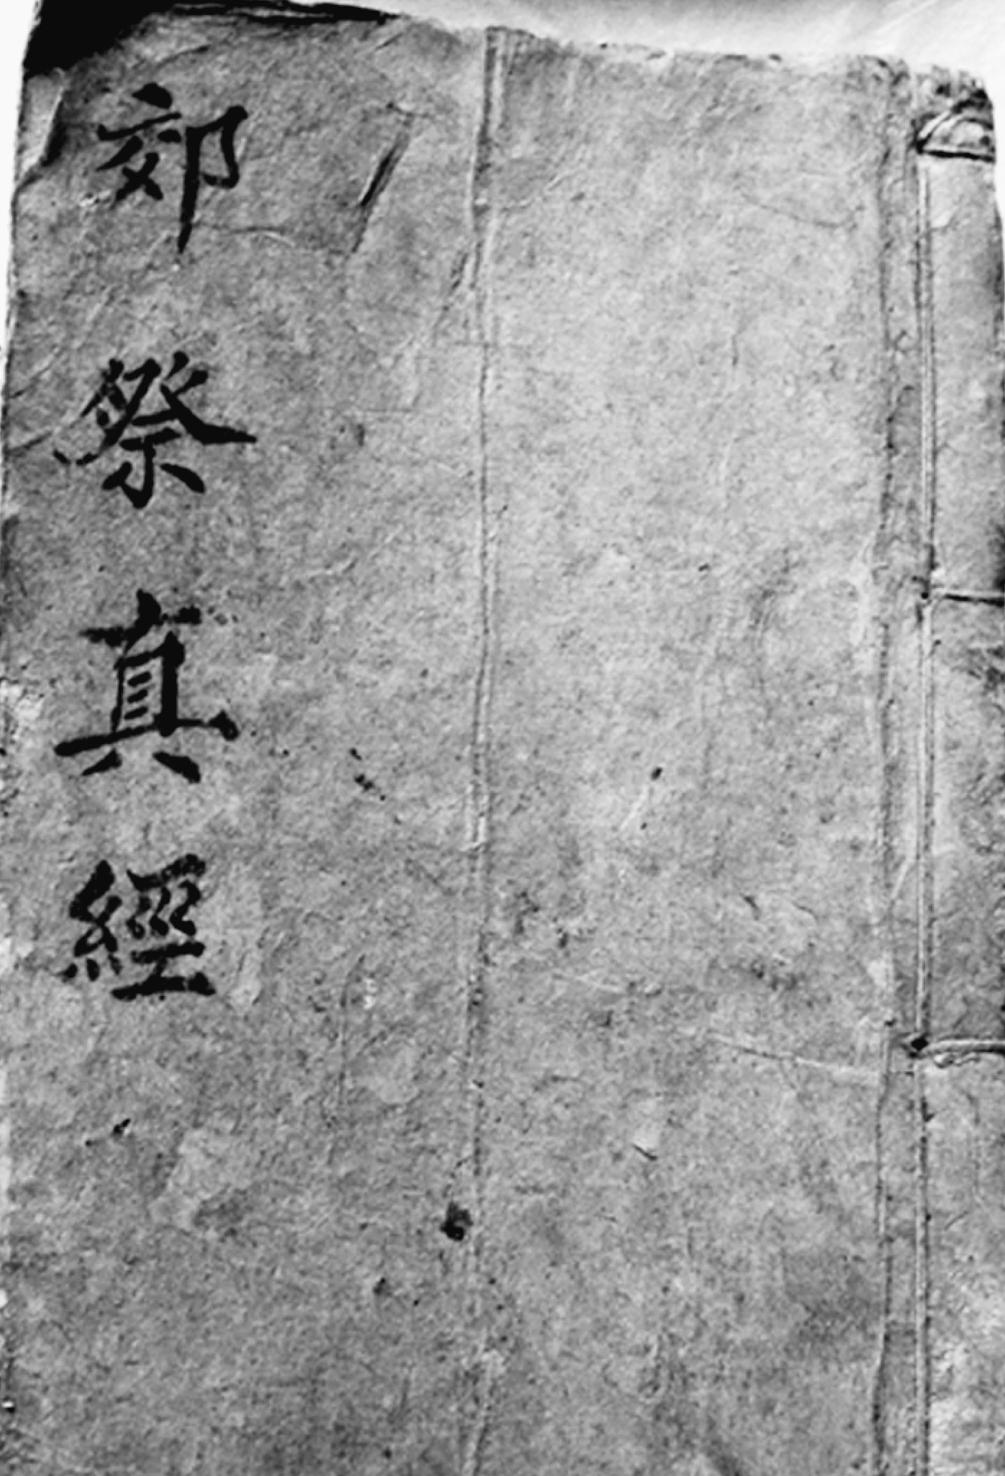 郊祭真經